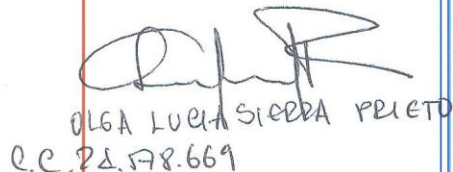 OLGA LUCIA SIERRA PRIETO
C.C. 21.578.669